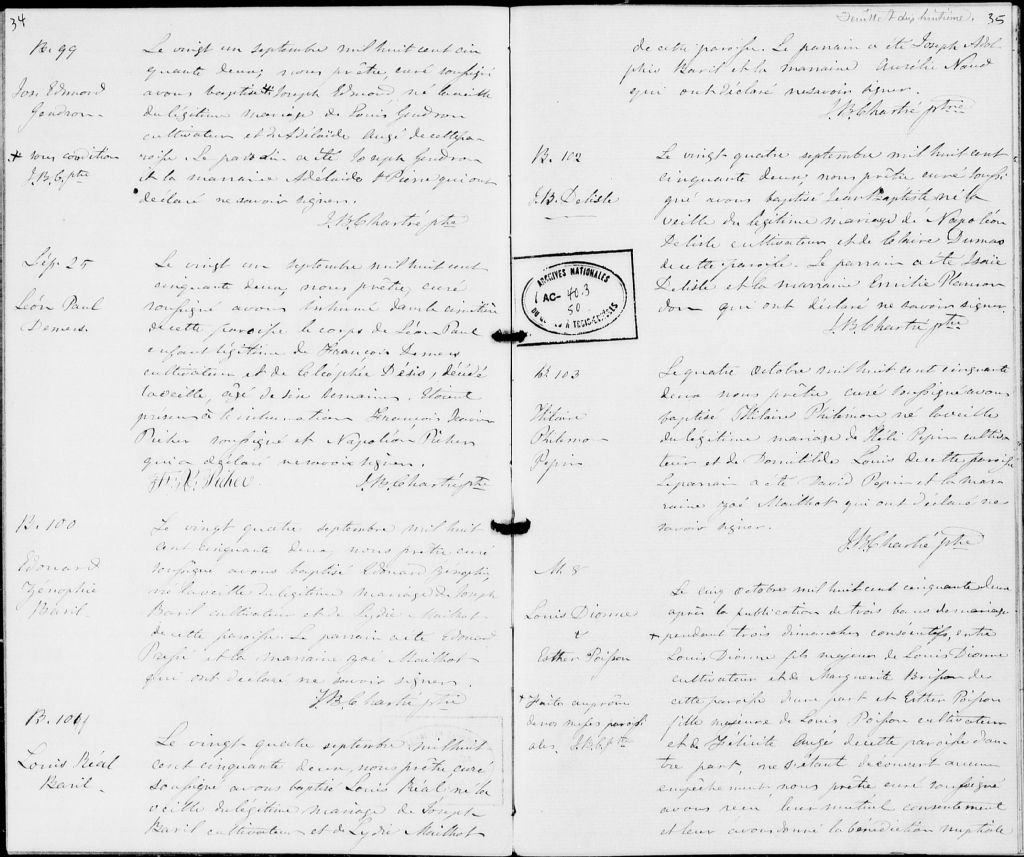 34
B. 99
Jos. Edmond
Gendron
+ sous condition
J.B.C. ptre
Le vingt un septembre mil huit cent cin
quante deux, nous prêtre, curé soussigné
avons baptisé + Joseph Edmond, né la veille
du légitime mariage de Louis Gendron
cultivateur et de Adélaide Augé de cette pa-
roisse. Le parrain a été Joseph Gendron
et la marraine Adélaide St Pierre qui ont
déclaré ne savoir signer.
J.B. Chartré ptre
Sép. 25
Léon Paul
Demers
Le vingt un septembre mil huit cent
cinquante deux, nous prêtre, curé
soussigné avons inhumé dans le cimetière
de cette paroisse le corps de Léon Paul
enfant légitime de François Demers
cultivateur et de Cléophée Désio, décédé
la veille, âgé de six semaines. Etaient
présens à l'inhumation François Xavier
Picher soussigné et Napoléon Picher
qui a déclaré ne savoir signer.
F.X. Picher J.B. Chartré ptre
B. 100
Edouard
Zénophie
Baril
Le vingt quatre septembre mil huit
cent cinquante deux, nous prêtre curé
soussigné avons baptisé Edouard Zénophie,
né la veille du légitime mariage de Joseph
Baril cultivateur et de Lydie Mailhot
de cette paroisse. Le parrain a été Edouard
et la marraine Zoé Mailhot
qui ont déclaré ne savoir signer.
J.B. Chartré ptre
B. 101
Louis Réal
Baril
Le vingt quatre septembre mil huit
cent cinquante deux, nous prêtre curé
soussigné avons baptisé Louis Réal né la
veille du légitime mariage de Joseph
Baril cultivateur et de Lydie Mailhot
Feuillet dix huitième. 35
de cette paroisse. Le parrain a été Joseph Adol
phis Baril et la marraine Aurélie Naud
qui ont déclaré ne savoir signer.
J.B. Chartré ptre
B. 102
J.B. Delisle
Le vingt quatre septembre mil huit cent
cinquante deux, nous prêtre curé soussi
gné avons baptisé Jean Baptiste né la
veille du légitime mariage de Napoléon
Delisle cultivateur et de Claire Dumas
de cette paroisse. Le parrain a été Isaie
Delisle et la marraine Emilie Plamon
don qui ont déclaré ne savoir signer.
J.B. Chartré ptre
ARCHIVES NATIONALES
AC- 40.3
50
DU QUÉBEC À TROIS-RIVIÈRES
B. 103
Hilaire
Philémon
Pepin
Le quatre octobre mil huit cent cinquante
deux nous prêtre, curé soussigné avons
baptisé Hilaire Philémon né la veille
du légitime mariage de Héli Pepin cultiva
teur et de Domitilde Louis de cette paroisse
Le parrain a été David Pepin et la mar
raine Zoé Mailhot qui ont déclaré ne
savoir signer.
J.B. Chartré ptre
M. 8
Louis Dionne
&
Esther Poisson
+ Faite au prône
de nos messes paroissi
ales. J.B.C. ptre
Le cinq octobre mil huit cent cinquante deux
après la publication de trois bans de mariage
+ pendant trois dimanches consécutifs, entre
Louis Dionne fils majeur de Louis Dionne
cultivateur et de Marguerite Brisson de
cette paroisse d'une part et Esther Poisson
fille mineure de Louis Poisson cultivateur
et de Félicité Augé de cette paroisse d'au
tre part, ne s'étant découvert aucun
empêchement, nous prêtre curé soussigné
avons reçu leur mutuel consentement
et leur avons donné la bénédiction nuptiale